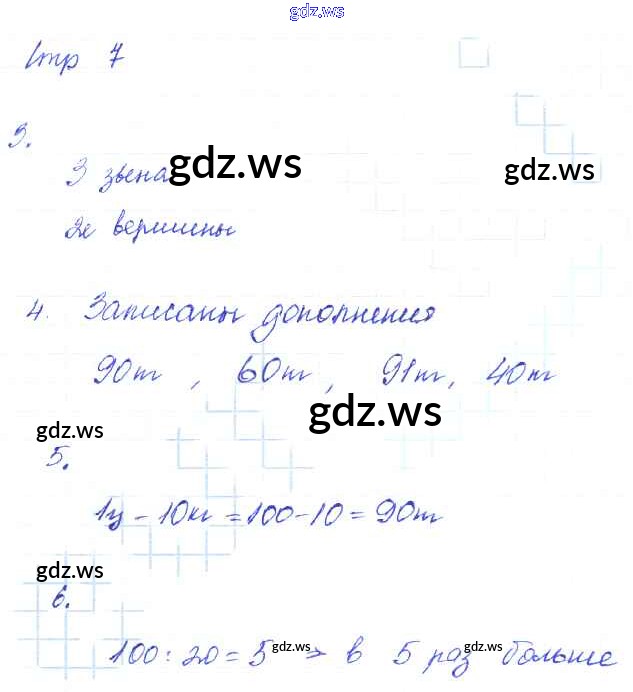 gdz.ws
Стр 7
3.
3 звена
gdz.ws
gdz.ws
2е вершины
4. Записаны дополнения
90т, 60т, 91т, 40т
gdz.ws
gdz.ws
5.
1ц - 10кг = 100-10 = 90т
gdz.ws
6.
100 : 20 = 5 ⇒ в 5 раз больше
gdz.ws
gdz.ws